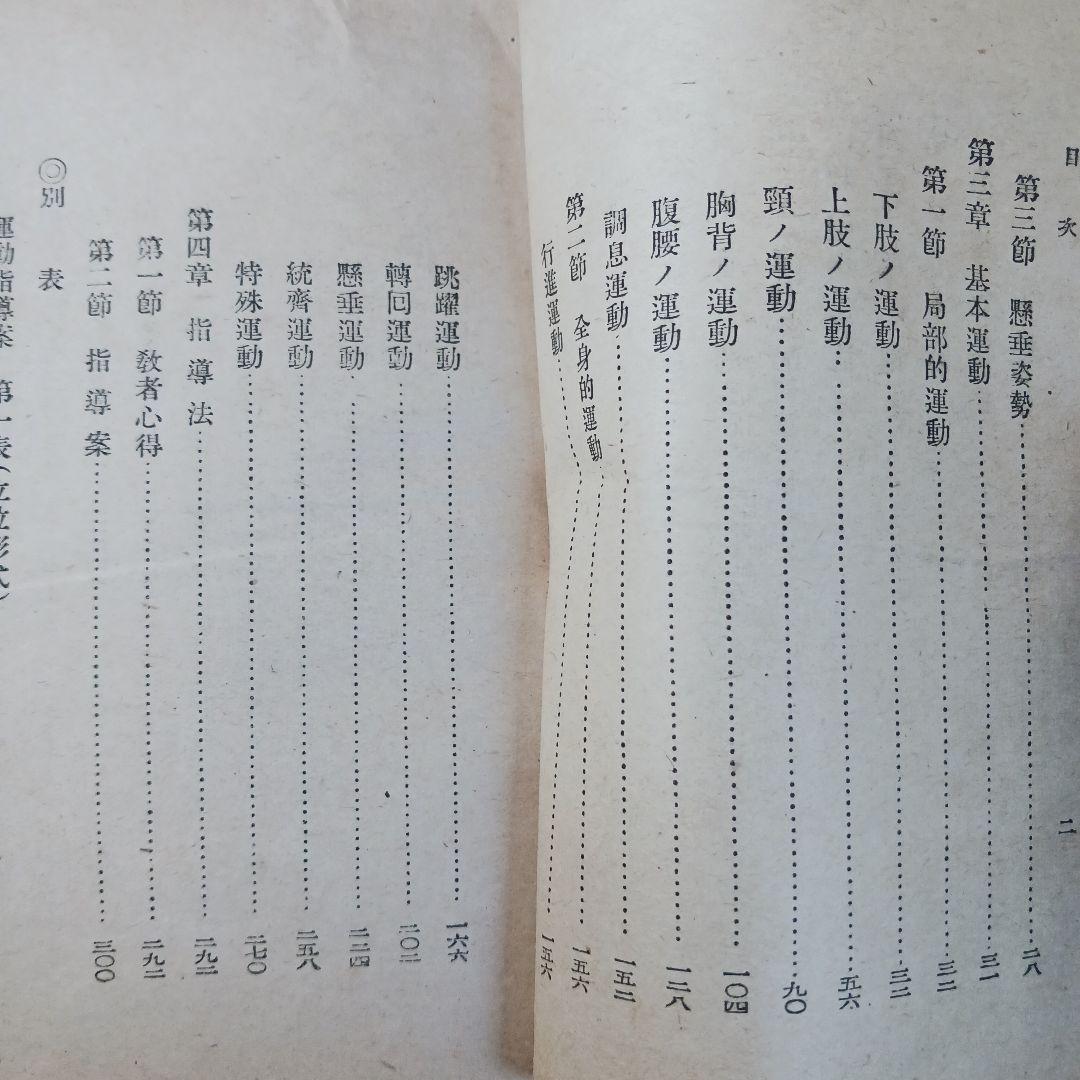 目次
二
第三節 懸垂姿勢……二八
第三章 基本運動……三一
第一節 局部的運動……三二
下肢ノ運動……三二
上肢ノ運動……五六
頸ノ運動……九〇
胸背ノ運動……一〇四
腹腰ノ運動……一二八
調息運動……一五二
第二節 全身的運動……一五六
行進運動……一五六
跳躍運動……一六六
轉囘運動……二〇二
懸垂運動……二二四
統齊運動……二五八
特殊運動……二七〇
第四章 指導法……二九二
第一節 敎者心得……二九二
第二節 指導案……三〇〇
◎別表
運動指導案 第一表(立位形式)